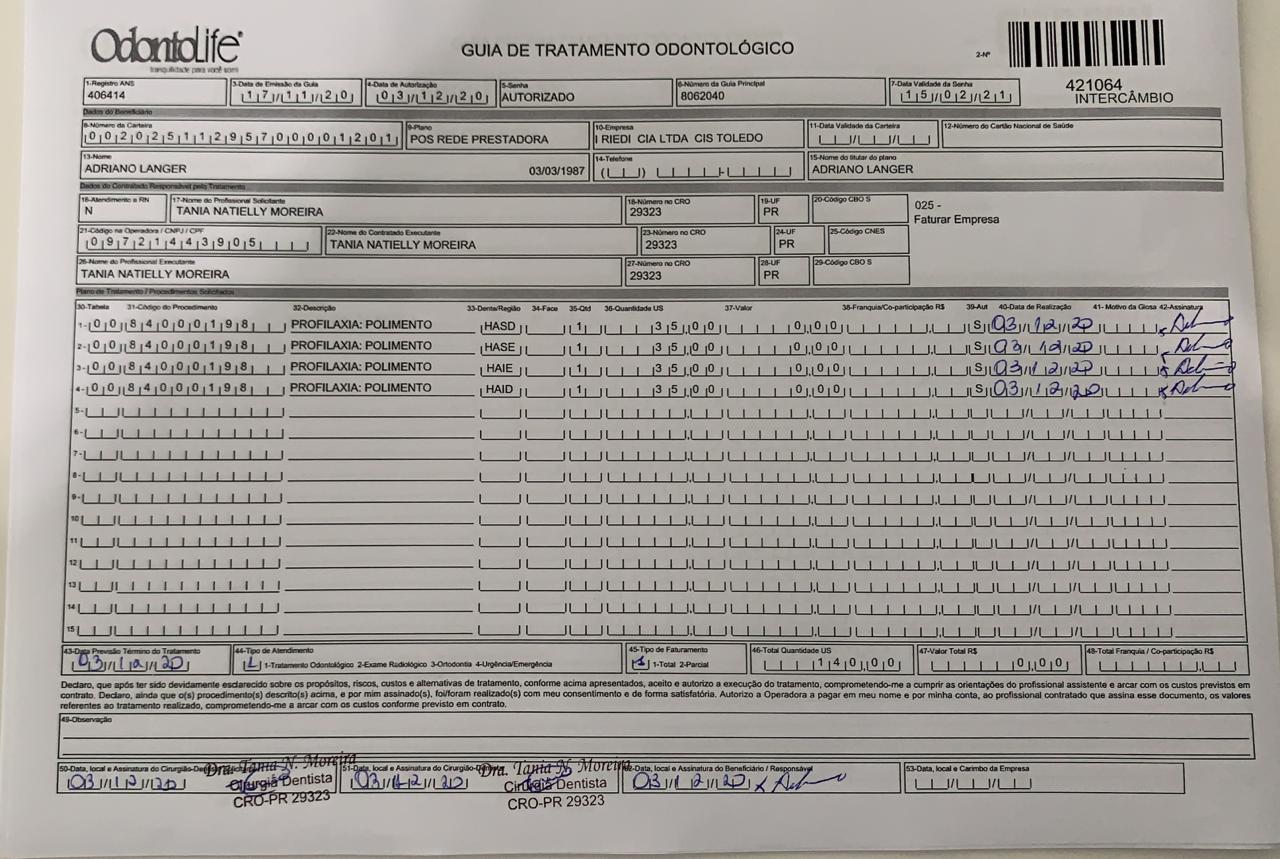 OdontoLife
tranquilidade para você sorrir
GUIA DE TRATAMENTO ODONTOLÓGICO
2-Nº
421064
INTERCÂMBIO
1-Registro ANS
406414
3-Data de Emissão da Guia
17/11/20
4-Data de Autorização
03/12/20
5-Senha
AUTORIZADO
6-Número da Guia Principal
8062040
7-Data Validade da Senha
15/02/21
Dados do Beneficiário
8-Número da Carteira
00202511295700001201
9-Plano
POS REDE PRESTADORA
10-Empresa
I RIEDI CIA LTDA CIS TOLEDO
11-Data Validade da Carteira
12-Número do Cartão Nacional de Saúde
13-Nome
ADRIANO LANGER 03/03/1987
14-Telefone
15-Nome do titular do plano
ADRIANO LANGER
Dados do Contratado Responsável pelo Tratamento
16-Atendimento a RN
N
17-Nome do Profissional Solicitante
TANIA NATIELLY MOREIRA
18-Número no CRO
29323
19-UF
PR
20-Código CBO S
025 -
Faturar Empresa
21-Código na Operadora / CNPJ / CPF
09721443905
22-Nome do Contratado Executante
TANIA NATIELLY MOREIRA
23-Número no CRO
29323
24-UF
PR
25-Código CNES
26-Nome do Profissional Executante
TANIA NATIELLY MOREIRA
27-Número no CRO
29323
28-UF
PR
29-Código CBO S
Plano de Tratamento / Procedimentos Solicitados
30-Tabela 31-Código do Procedimento 32-Descrição 33-Dente/Região 34-Face 35-Qtd 36-Quantidade US 37-Valor 38-Franquia/Co-participação R$ 39-Aut 40-Data de Realização 41- Motivo da Glosa 42-Assinatura
1- 00 84000198 PROFILAXIA: POLIMENTO HASD 1 35,00 0,00 S 03/12/20
2- 00 84000198 PROFILAXIA: POLIMENTO HASE 1 35,00 0,00 S 03/12/20
3- 00 84000198 PROFILAXIA: POLIMENTO HAIE 1 35,00 0,00 S 03/12/20
4- 00 84000198 PROFILAXIA: POLIMENTO HAID 1 35,00 0,00 S 03/12/20
5-
6-
7-
8-
9-
10
11
12
13
14
15
43-Data Previsão Término do Tratamento
03/12/20
44-Tipo de Atendimento
1 1-Tratamento Odontológico 2-Exame Radiológico 3-Ortodontia 4-Urgência/Emergência
45-Tipo de Faturamento
1-Total 2-Parcial
46-Total Quantidade US
140,00
47-Valor Total R$
0,00
48-Total Franquia / Co-participação R$
Declaro, que após ter sido devidamente esclarecido sobre os propósitos, riscos, custos e alternativas de tratamento, conforme acima apresentados, aceito e autorizo a execução do tratamento, comprometendo-me a cumprir as orientações do profissional assistente e arcar com os custos previstos em
contrato. Declaro, ainda que o(s) procedimento(s) descrito(s) acima, e por mim assinado(s), foi/foram realizado(s) com meu consentimento e de forma satisfatória. Autorizo a Operadora a pagar em meu nome e por minha conta, ao profissional contratado que assina esse documento, os valores
referentes ao tratamento realizado, comprometendo-me a arcar com os custos conforme previsto em contrato.
49-Observação
50-Data, local e Assinatura do Cirurgião-Dentista
03/12/20
Dra. Tania N. Moreira
Cirurgiã Dentista
CRO-PR 29323
51-Data, local e Assinatura do Cirurgião-Dentista
03/12/20
Dra. Tania N. Moreira
Cirurgiã Dentista
CRO-PR 29323
52-Data, local e Assinatura do Beneficiário / Responsável
03/12/20
53-Data, local e Carimbo da Empresa